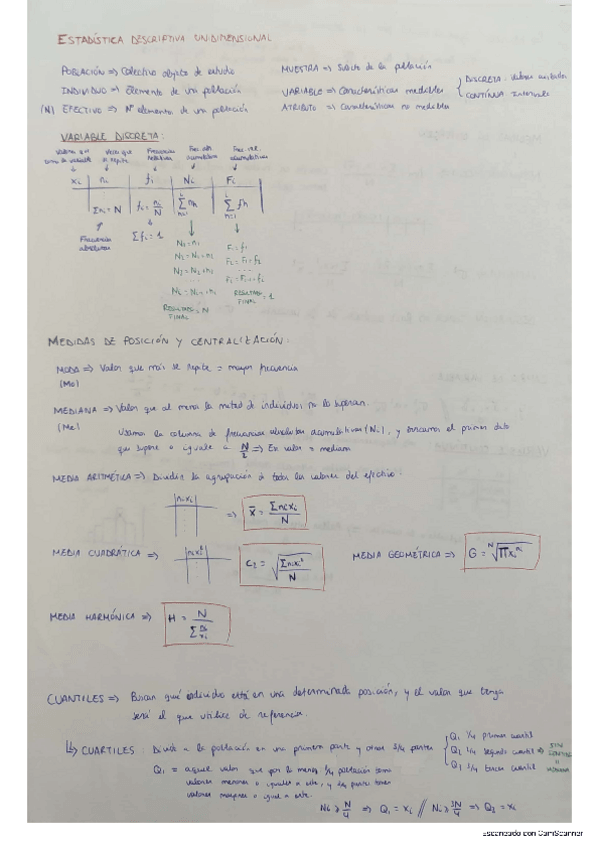 ESTADÍSTICA DESCRIPTIVA UNIDIMENSIONAL
POBLACIÓN => Colectivo objeto de estudio
MUESTRA => Subcto de la población
INDIVIDUO => Elemento de una población
VARIABLE => Características medibles
DISCRETA: Valores aislados
CONTÍNUA: Intervalo
(N) EFECTIVO => Nº elementos de una población
ATRIBUTO => Características no medibles
VARIABLE DISCRETA:
Valores que toma la variable
Veces que se repite
Frecuencia relativa
Frec. abs. acumulativas
Frec. rel. acumulativas
xi | ni | fi | Ni | Fi
Σni = N
fi = ni/N
Σ nh
Σ fh
Frecuencia absolutas
Σfi = 1
N1 = n1
N2 = N1 + n2
N3 = N2 + n3
Ni = Ni-1 + ni
RESULTADO FINAL = N
F1 = f1
F2 = F1 + f2
Fi = Fi-1 + fi
RESULTADO FINAL = 1
MEDIDAS DE POSICIÓN Y CENTRALIZACIÓN:
MODA => Valor que más se repite = mayor frecuencia
(Mo)
MEDIANA => Valor que al menos la mitad de individuos no la superan.
(Me)
Usamos la columna de frecuencias absolutas acumulativas (Ni), y buscamos el primer dato
que supere o iguale a N/2 => Ese valor = mediana
MEDIA ARITMÉTICA => Dividir la agrupación de todos los valores del efectivo.
nixi
=> x̄ = Σnixi / N
MEDIA CUADRÁTICA =>
nixi²
=> C2 = √(Σnixi² / N)
MEDIA GEOMÉTRICA => G = ᴺ√(∏xi^ni)
MEDIA HARMÓNICA => H = N / Σ(ni/xi)
CUANTILES => Buscan qué individuo está en una determinada posición, y el valor que tenga
será el que utilice de referencia.
↳ CUARTILES: Divide a la población en una primera parte y otras 3/4 partes
Q1 1/4 primer cuartil
Q2 2/4 segundo cuartil
Q3 3/4 tercer cuartil
Q1 = aquel valor que por lo menos 1/4 población toma
valores menores o iguales a este, y 3/4 partes toman
valores mayores o igual a este.
Ni ≥ N/4 => Q1 = xi // Ni ≥ 3N/4 => Q3 = xi
Escaneado con CamScanner